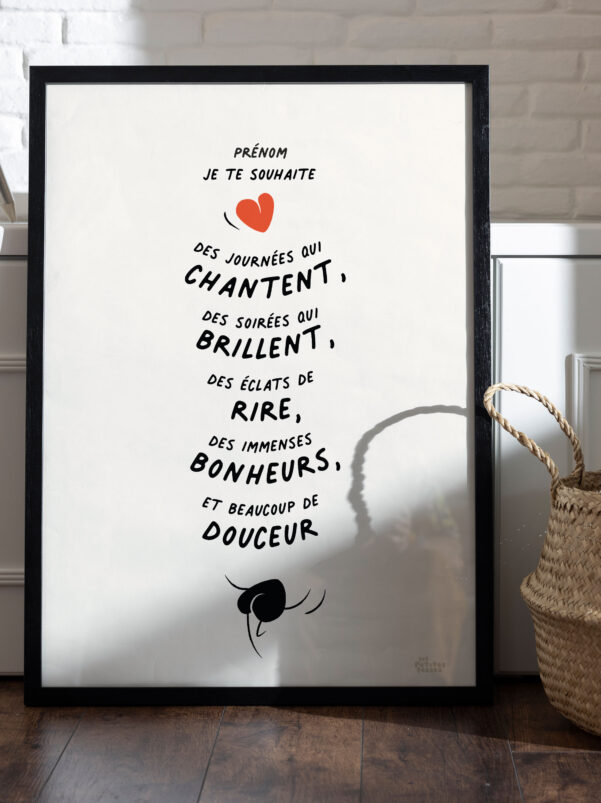 PRÉNOM
JE TE SOUHAITE
DES JOURNÉES QUI
CHANTENT,
DES SOIRÉES QUI
BRILLENT,
DES ÉCLATS DE
RIRE,
DES IMMENSES
BONHEURS,
ET BEAUCOUP DE
DOUCEUR